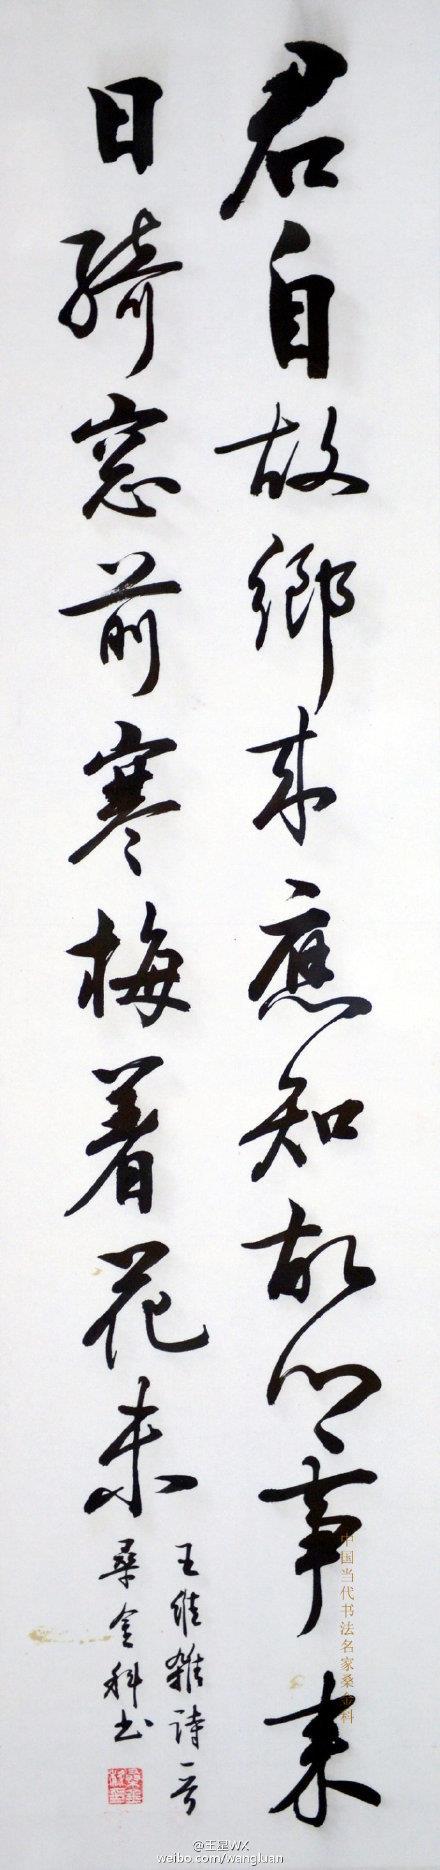 君自故鄉来應知故鄉事来
日綺窓前寒梅着花未
王维雜詩一首
桑金科书
中国当代书法名家桑金科
@王星WX
weibo.com/wangluan